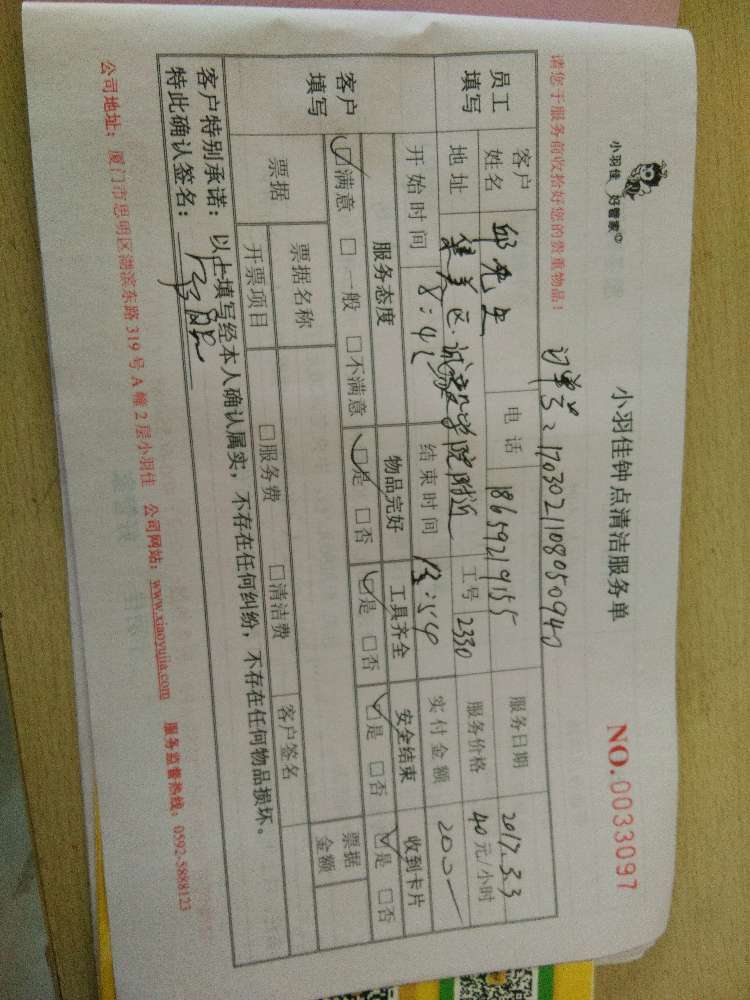 小羽佳 好管家
小羽佳钟点清洁服务单
NO.0033097
请您于服务前收拾好您的贵重物品!
订单号:1703021108050940
员工填写
客户姓名 邱先生 电话 18659219155 服务日期 2017.3.3
地址 集美区.诚毅学院附近 工号 2330 服务价格 40元/小时
开始时间 8:4 结束时间 :54 实付金额 200
客户填写
服务态度 物品完好 工具齐全 安全结束 收到卡片
☑满意 □一般 □不满意 ☑是 □否 ☑是 □否 ☑是 □否 ☑是 □否
票据 票据名称 客户签名 票据金额
开票项目 □服务费 □清洁费
客户特别承诺:以上填写经本人确认属实,不存在任何纠纷,不存在任何物品损坏。
特此确认签名:
公司地址:厦门市思明区湖滨东路319号A幢2层小羽佳 公司网站:www.xiaoyujia.com 服务监督热线:0592-5888123